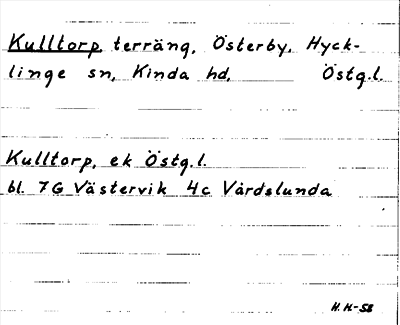 Kulltorp terräng, Österby, Hyck-
linge sn, Kinda hd, Östg.l.
Kulltorp, ek Östg.l.
bl. 7G Västervik 4c Vårdslunda
H.H.-58